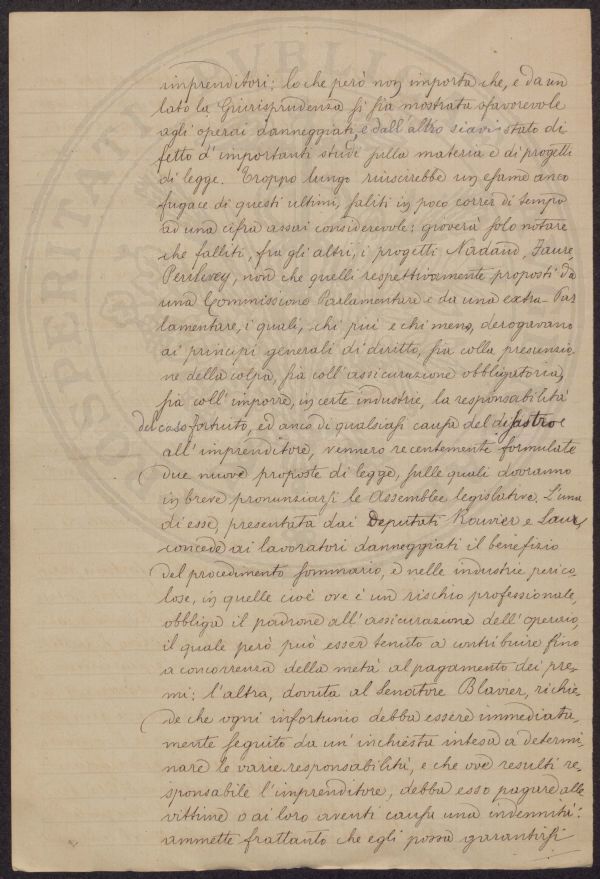 imprenditori; lo che però non importa che, e da un
lato la Giurisprudenza si sia mostrata sfavorevole
agli operai danneggiati, e dall'altro siavi stato di
fetto d'importanti studi sulla materia e di progetti
di legge. Troppo lungo riuscirebbe un esame anco
fugace di questi ultimi, saliti in poco correr di tempo
ad una cifra assai considerevole: gioverà solo notare
che falliti, fra gli altri, i progetti Nadaud, Faure,
non che quelli respettivamente proposti da
una Commissione Parlamentare e da una extra-Par
lamentare, i quali, chi più e chi meno, derogavano
ai principi generali di diritto, sia colla presunzio-
ne della colpa, sia coll'assicurazione obbligatoria,
sia coll'imporre, in certe industrie, la responsabilità
del caso fortuito, ed anco di qualsiasi causa del disastro
all'imprenditore, vennero recentemente formulate
due nuove proposte di legge, sulle quali dovranno
in breve pronunziarsi le Assemblee legislative. L'una
di esse, presentata dai Deputati Rouvier e
concede ai lavoratori danneggiati il benefizio
del procedimento sommario, e nelle industrie perico-
lose, in quelle cioè ove è un rischio professionale,
obbliga il padrone all'assicurazione dell'operaio,
il quale però può esser tenuto a contribuire fino
a concorrenza della metà al pagamento dei pre-
mi: l'altra, dovuta al Senatore Blavier, richie-
de che ogni infortunio debba essere immediata-
mente seguito da un'inchiesta intesa a determi-
nare le varie responsabilità, e che ove resulti re-
sponsabile l'imprenditore, debba esso pagare alle
vittime o ai loro aventi causa una indennità:
ammette frattanto che egli possa garantirsi
PROSPERITATI PVBLICAE